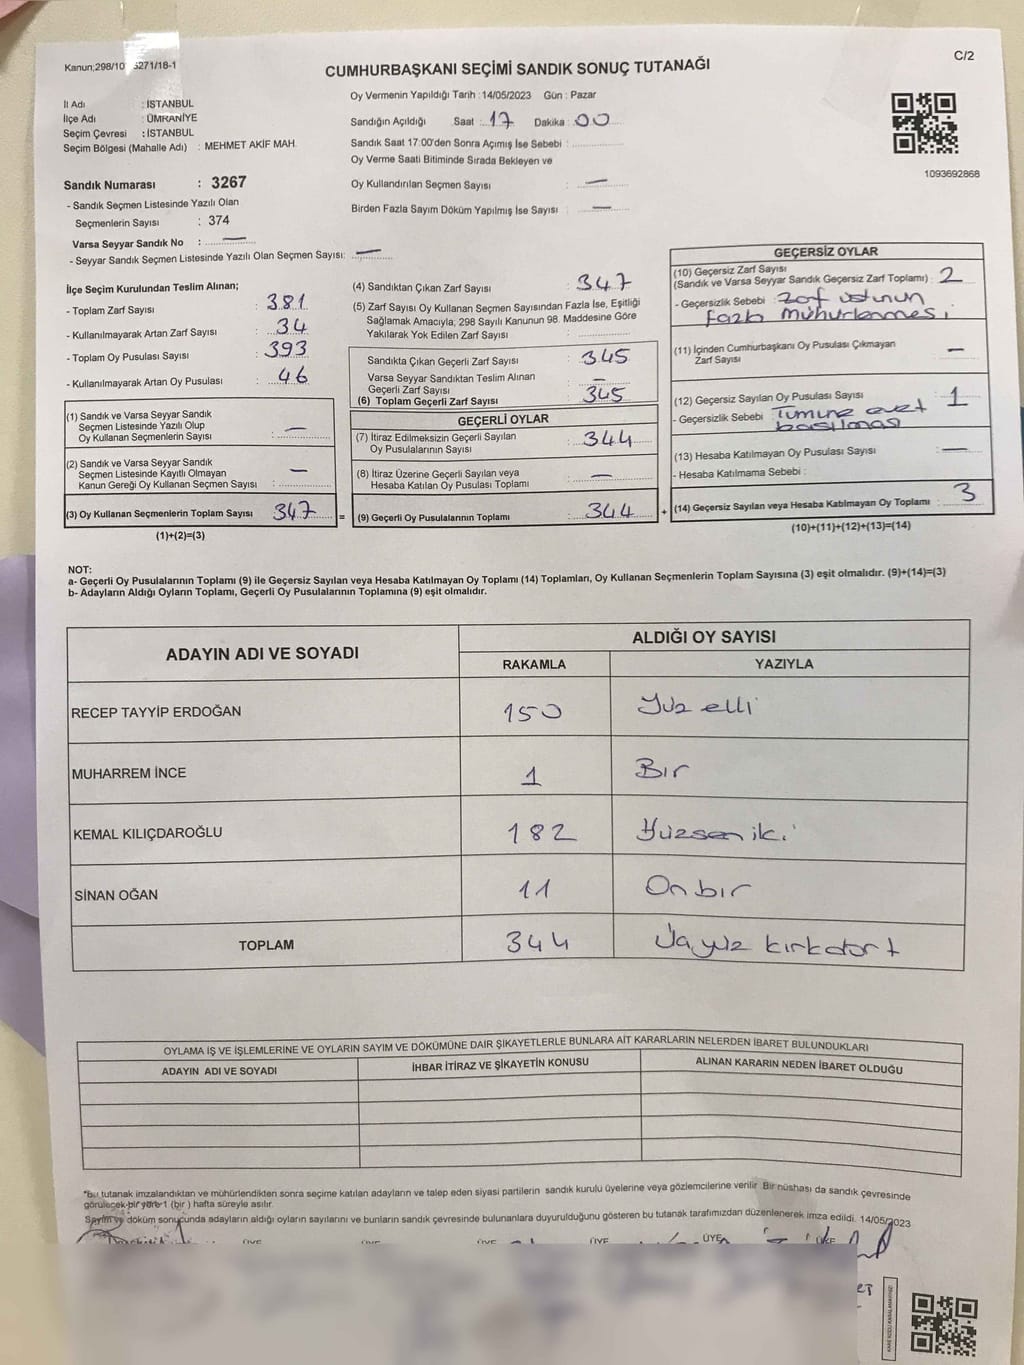 Kanun;298/10 5271/18-1
C/2
CUMHURBAŞKANI SEÇİMİ SANDIK SONUÇ TUTANAĞI
İl Adı : İSTANBUL
İlçe Adı : ÜMRANİYE
Seçim Çevresi : İSTANBUL
Seçim Bölgesi (Mahalle Adı) : MEHMET AKİF MAH.
Sandık Numarası : 3267
- Sandık Seçmen Listesinde Yazılı Olan
Seçmenlerin Sayısı : 374
Varsa Seyyar Sandık No : —
- Seyyar Sandık Seçmen Listesinde Yazılı Olan Seçmen Sayısı: —
Oy Vermenin Yapıldığı Tarih : 14/05/2023 Gün : Pazar
Sandığın Açıldığı Saat : 17 Dakika : 00
Sandık Saat 17:00'den Sonra Açımış İse Sebebi :
Oy Verme Saati Bitiminde Sırada Bekleyen ve
Oy Kullandırılan Seçmen Sayısı : —
Birden Fazla Sayım Döküm Yapılmış İse Sayısı : —
1093692868
İlçe Seçim Kurulundan Teslim Alınan;
- Toplam Zarf Sayısı : 381
- Kullanılmayarak Artan Zarf Sayısı : 34
- Toplam Oy Pusulası Sayısı : 393
- Kullanılmayarak Artan Oy Pusulası : 46
(1) Sandık ve Varsa Seyyar Sandık
Seçmen Listesinde Yazılı Olup
Oy Kullanan Seçmenlerin Sayısı : —
(2) Sandık ve Varsa Seyyar Sandık
Seçmen Listesinde Kayıtlı Olmayan
Kanun Gereği Oy Kullanan Seçmen Sayısı : —
(3) Oy Kullanan Seçmenlerin Toplam Sayısı 347 =
(1)+(2)=(3)
(4) Sandıktan Çıkan Zarf Sayısı : 347
(5) Zarf Sayısı Oy Kullanan Seçmen Sayısından Fazla İse, Eşitliği
Sağlamak Amacıyla, 298 Sayılı Kanunun 98. Maddesine Göre
Yakılarak Yok Edilen Zarf Sayısı :
Sandıkta Çıkan Geçerli Zarf Sayısı : 345
Varsa Seyyar Sandıktan Teslim Alınan
Geçerli Zarf Sayısı : —
(6) Toplam Geçerli Zarf Sayısı : 345
GEÇERLİ OYLAR
(7) İtiraz Edilmeksizin Geçerli Sayılan
Oy Pusulalarının Sayısı : 344
(8) İtiraz Üzerine Geçerli Sayılan veya
Hesaba Katılan Oy Pusulası Toplamı : —
(9) Geçerli Oy Pusulalarının Toplamı : 344 +
GEÇERSİZ OYLAR
(10) Geçersiz Zarf Sayısı
(Sandık ve Varsa Seyyar Sandık Geçersiz Zarf Toplamı) : 2
- Geçersizlik Sebebi : Zarf üstünün
fazla mühürlenmesi
(11) İçinden Cumhurbaşkanı Oy Pusulası Çıkmayan
Zarf Sayısı : —
(12) Geçersiz Sayılan Oy Pusulası Sayısı : 1
- Geçersizlik Sebebi : Tümüne evet
basılması
(13) Hesaba Katılmayan Oy Pusulası Sayısı : —
- Hesaba Katılmama Sebebi :
(14) Geçersiz Sayılan veya Hesaba Katılmayan Oy Toplamı : 3
(10)+(11)+(12)+(13)=(14)
NOT:
a- Geçerli Oy Pusulalarının Toplamı (9) ile Geçersiz Sayılan veya Hesaba Katılmayan Oy Toplamı (14) Toplamları, Oy Kullanan Seçmenlerin Toplam Sayısına (3) eşit olmalıdır. (9)+(14)=(3)
b- Adayların Aldığı Oyların Toplamı, Geçerli Oy Pusulalarının Toplamına (9) eşit olmalıdır.
ADAYIN ADI VE SOYADI ALDIĞI OY SAYISI
RAKAMLA YAZIYLA
RECEP TAYYİP ERDOĞAN 150 Yüz elli
MUHARREM İNCE 1 Bir
KEMAL KILIÇDAROĞLU 182 Yüzseniki
SİNAN OĞAN 11 Onbir
TOPLAM 344 Üçyüz kırkdört
OYLAMA İŞ VE İŞLEMLERİNE VE OYLARIN SAYIM VE DÖKÜMÜNE DAİR ŞİKAYETLERLE BUNLARA AİT KARARLARIN NELERDEN İBARET BULUNDUKLARI
ADAYIN ADI VE SOYADI İHBAR İTİRAZ VE ŞİKAYETİN KONUSU ALINAN KARARIN NEDEN İBARET OLDUĞU
*Bu tutanak imzalandıktan ve mühürlendikten sonra seçime katılan adayların ve talep eden siyasi partilerin sandık kurulu üyelerine veya gözlemcilerine verilir. Bir nüshası da sandık çevresinde
görülecek bir yere 1 (bir) hafta süreyle asılır.
Sayım ve döküm sonucunda adayların aldığı oyların sayılarını ve bunların sandık çevresinde bulunanlara duyurulduğunu gösteren bu tutanak tarafımızdan düzenlenerek imza edildi. 14/05/2023
ÜYE ÜYE ÜYE ÜYE ÜYE ÜYE